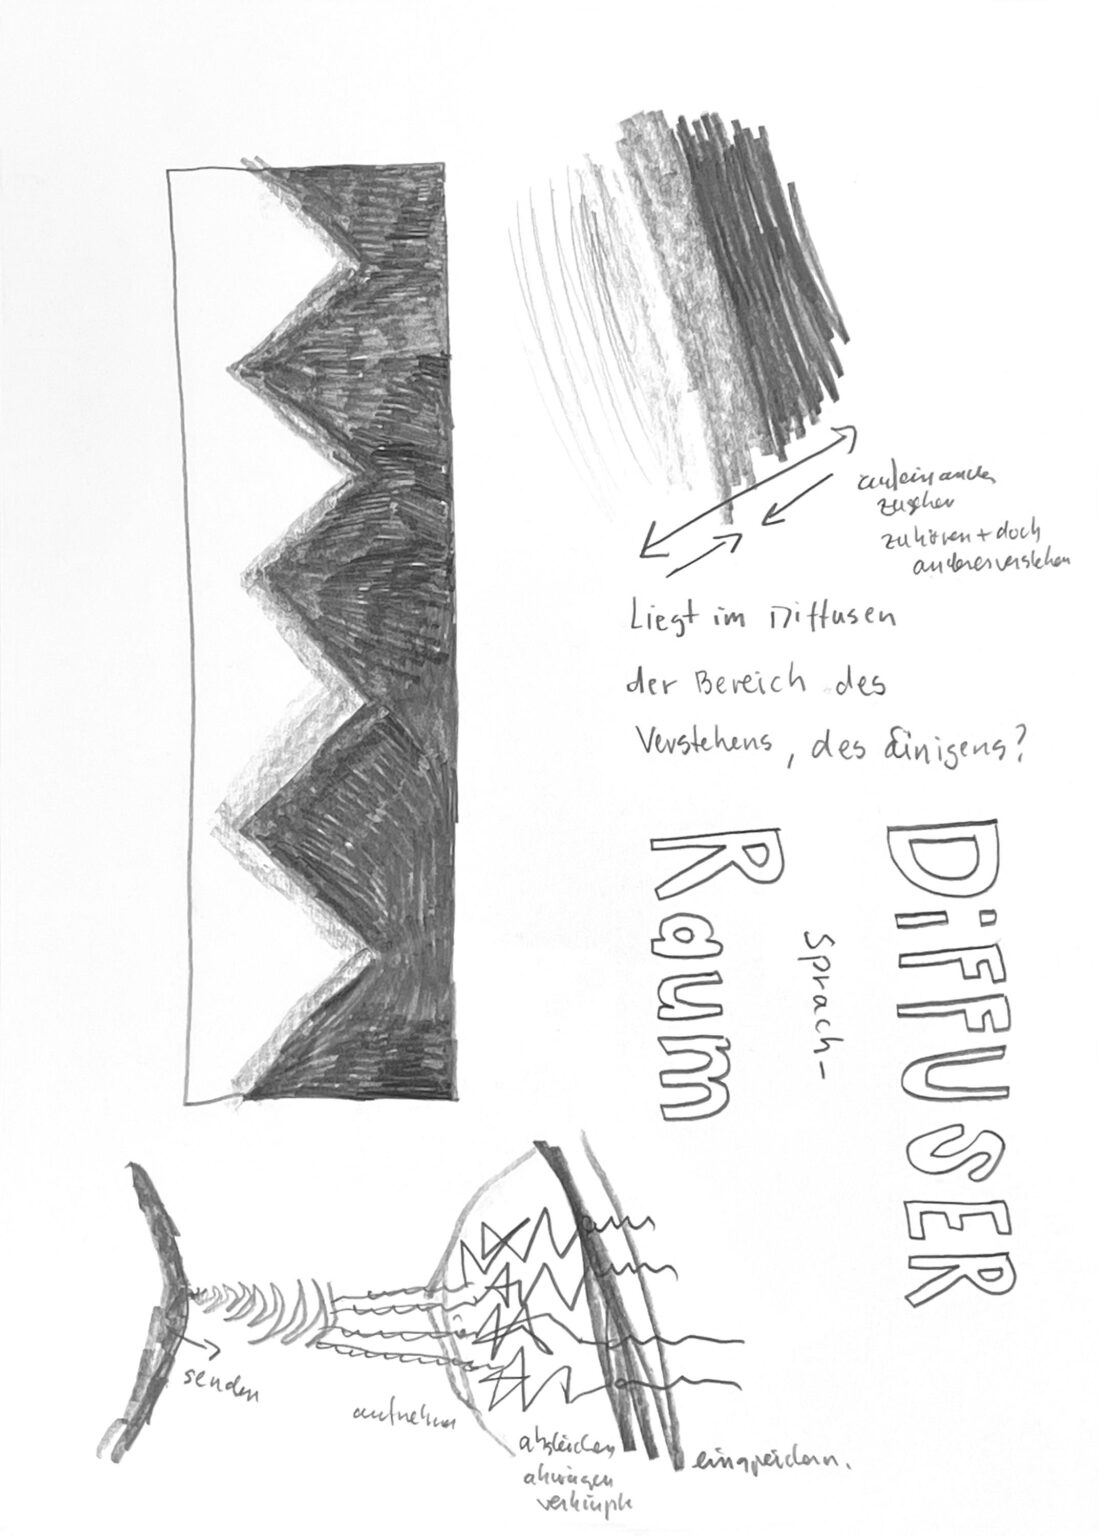 aufeinander
zugehen
zuhören + doch
anders verstehen
Liegt im Diffusen
der Bereich des
Verstehens, des Einigens?
DiFFUSER
Sprach-
Raum
senden
aufnehmen
abgleichen
abwägen
verknüpfen
einspeichern.